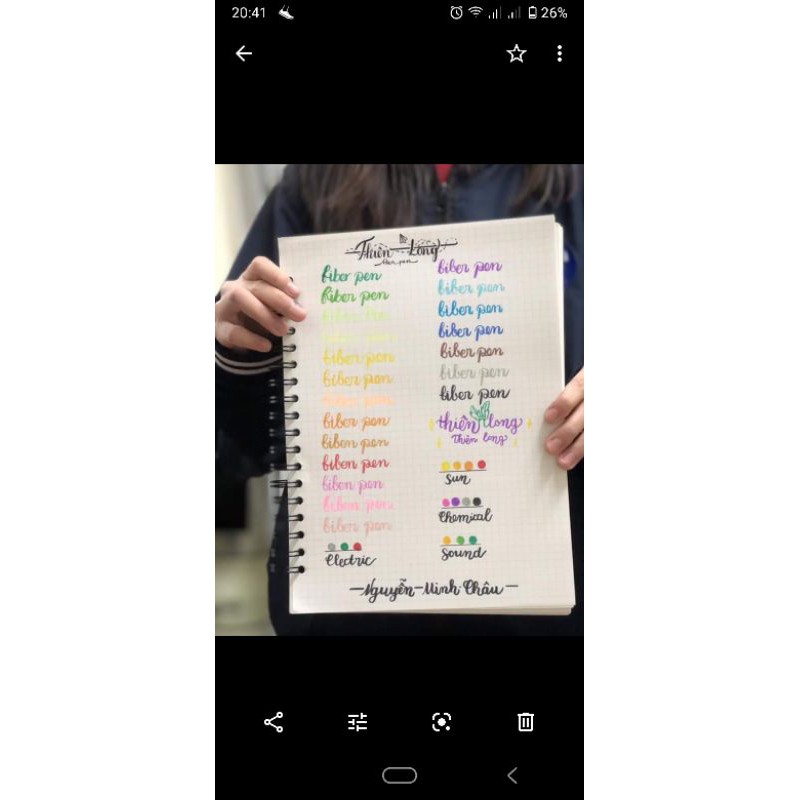 20:41
26%
Thiên Long
fiber pen
fiber pen
fiber pen
fiber pen
fiber pen
fiber pen
fiber pen
fiber pen
fiber pen
fiber pen
fiber pen
fiber pen
Electric
fiber pen
fiber pen
fiber pen
fiber pen
fiber pen
fiber pen
fiber pen
thiên long
Thiên long
Sun
Chemical
Sound
Nguyễn Minh Châu